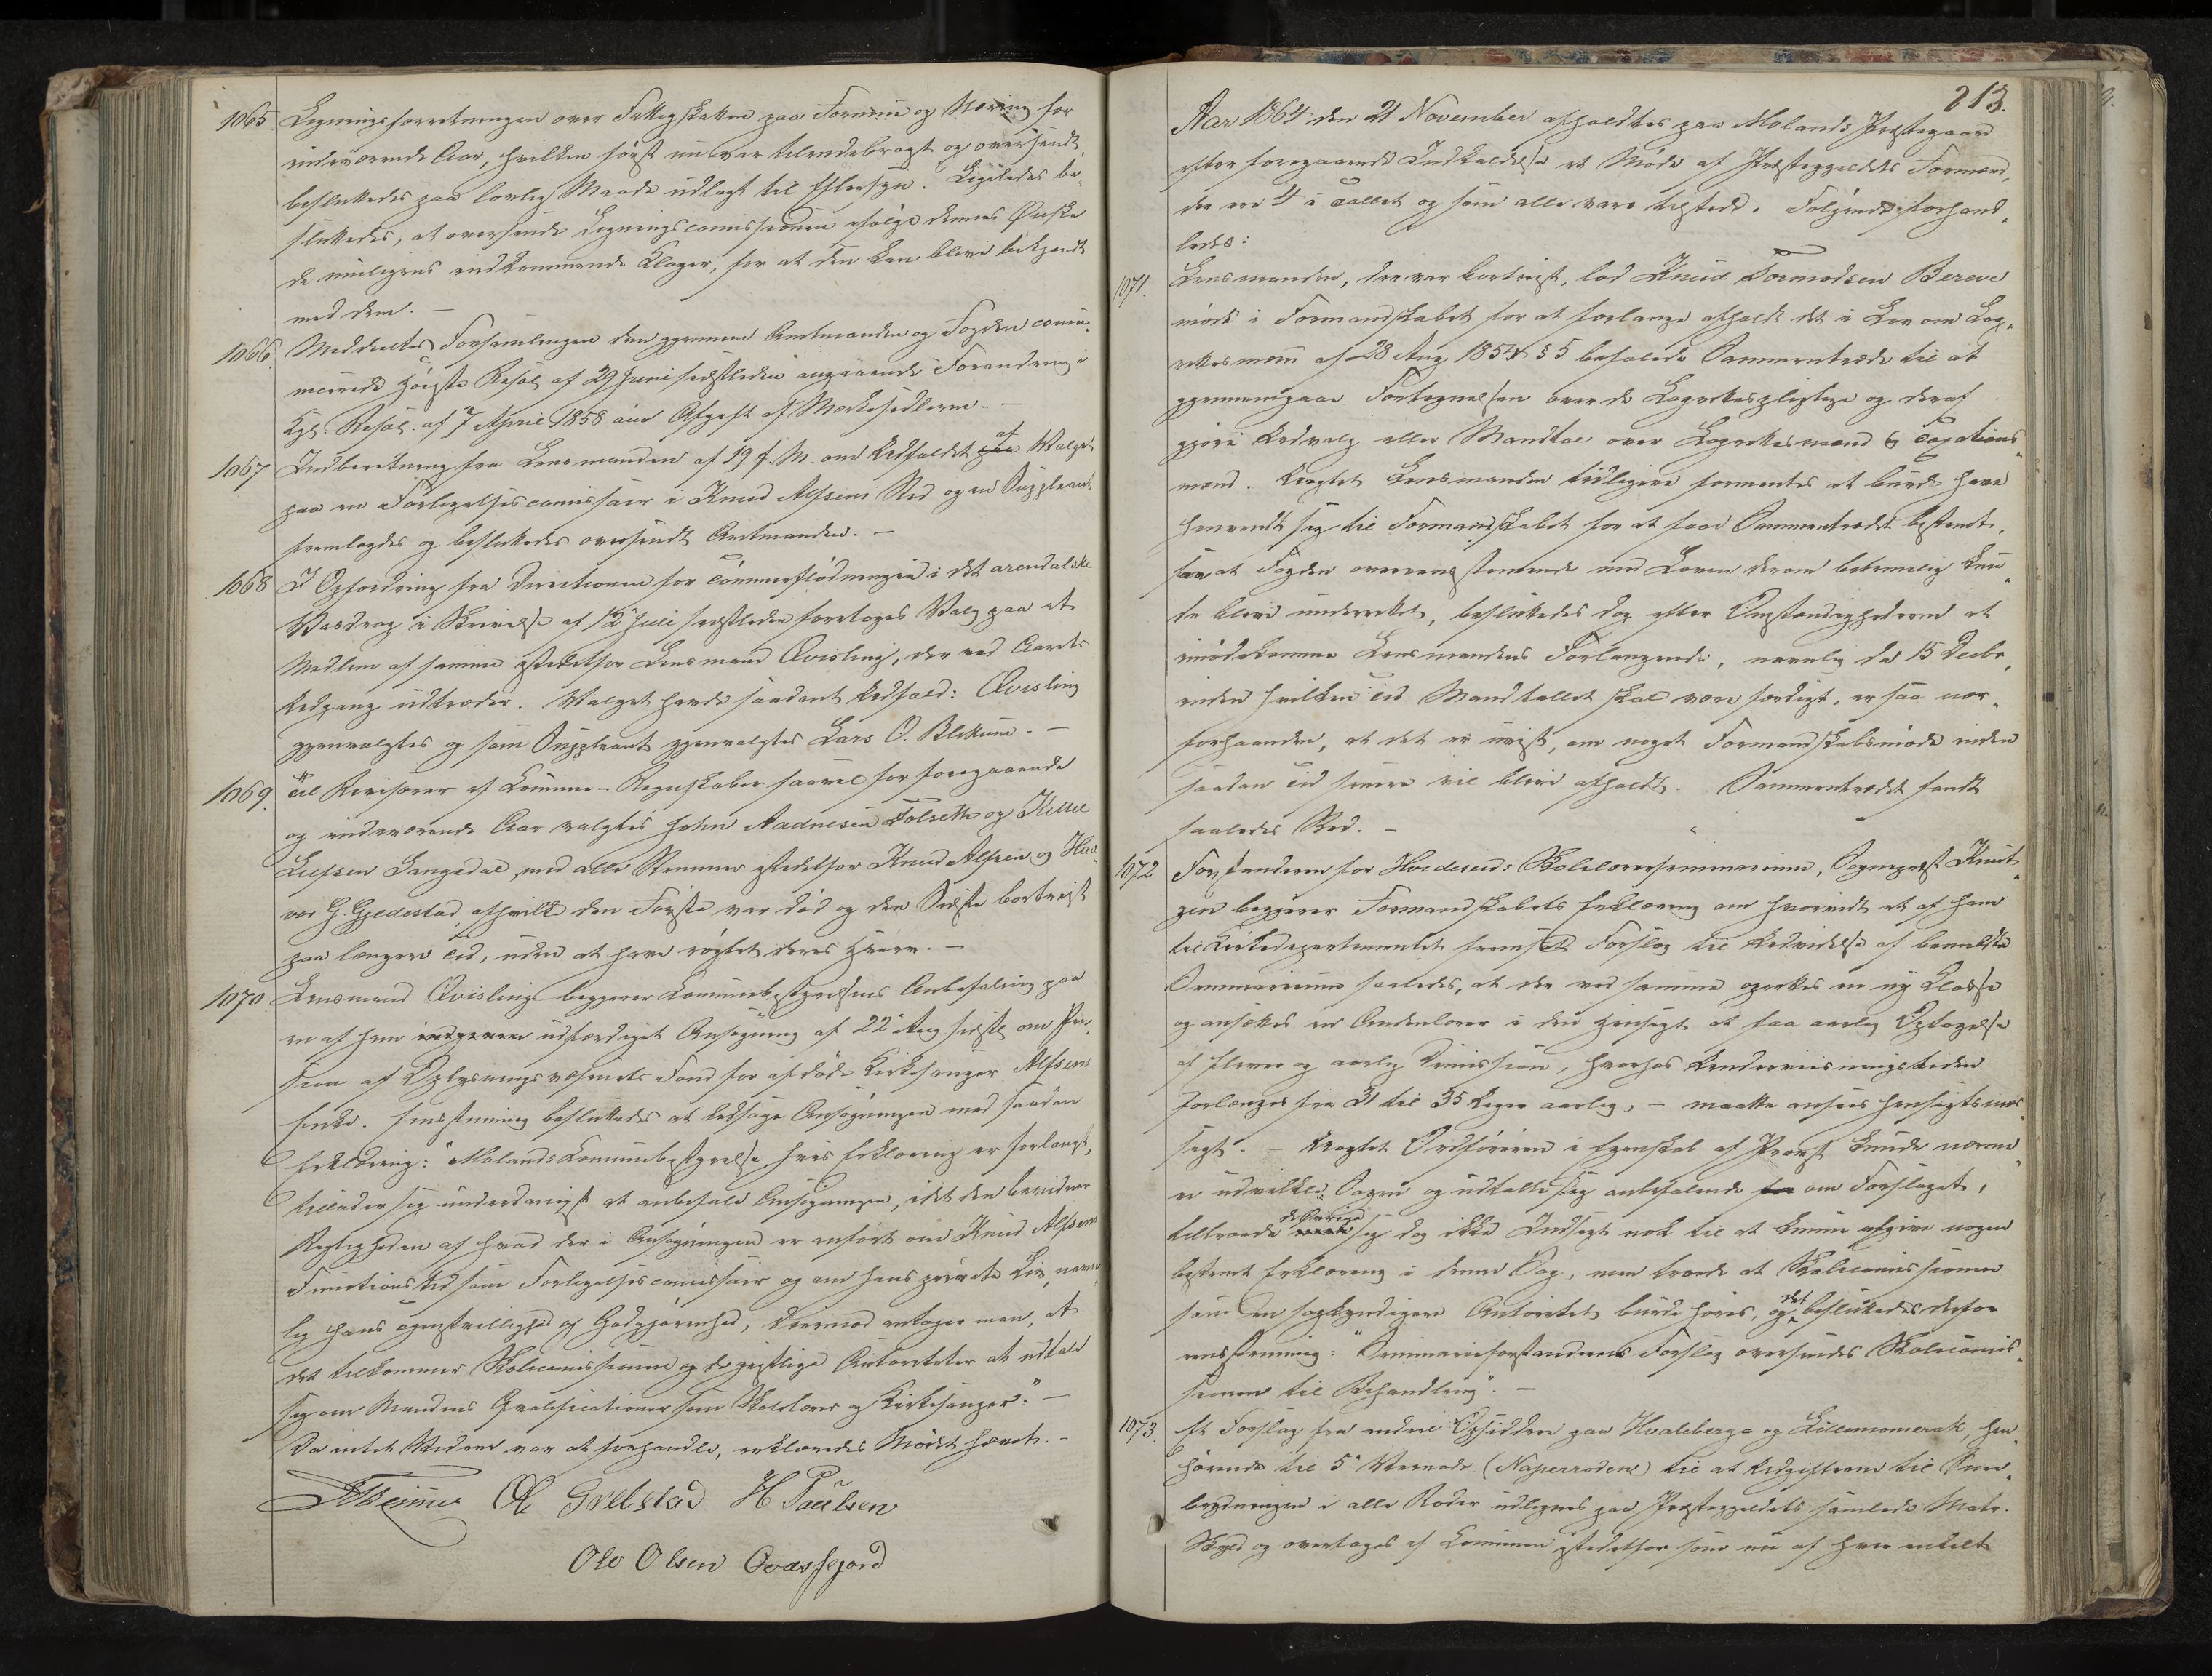 1065 Ligningsforretningen over Fattigskatten paa Formue og Næring for
indeværende Aar, hvilken først nu var tilendebragt og oversendt,
besluttedes paa lovlig Maade udlagt til Eftersyn. Ligeledes be-
sluttedes, at oversende Ligningscomissionen ifølge dennes Ønske
de muligens indkommende Klager, for at den kan blive bekjendt
med dem. –
1066. Meddeeltes Forsamlingen den gjennem Amtmanden og Fogden comu-
nicerede Høieste Resol. af 29 Juni sidstleden angaaende Forandring i
Kgl. Resol. af 7 April 1858 ang Afgift af Markesedlerne. –
1067 Indberetning fra Lensmanden af 19 f. M. om Udfaldet paa af Valget
paa en Forligelsescomissair i Knud Alfsens Sted og en Suppleant
fremlagdes og besluttedes oversendt Amtmanden. –
1068 I Opfordring fra Directionen for Tømmerflødningen i det arendalske
Vasdrag i Skrivelse af 12 Juli sidstleden foretoges Valg paa et
Medlem af samme istedetfor Lensmand Qvisling, der ved Aarets
Udgang udtræder. Valget havde saadant Udfald: Qvisling
gjenvalgtes og som Suppleant gjenvalgtes Lars O. Blekum. –
1069. Til Revisorer af Commune-Regnskaber saavel for foregaaende
og indeværende Aar valgtes John Aadnesen Tolseth og Kittel
Leifsen Langedal, med alle Stemmer istedetfor Knud Alfsen og Hal-
vor G. Gjedestad, af hvilke den Første var død og den Sidste bortreist
paa længere Tid, uden at have røgtet deres Hverv. –
1070. Lensmand Qvisling begjærer Communebestyrelsens Anbefaling paa
en af ham udfærdiget Ansøgning af 22 Aug sidstl. om Pen-
sion af Oplysningsvæsenets Fond for afdøde Kirkesanger Alfsens
Enke. Eenstemmig besluttedes at ledsage Ansøgningen med saadan
Erklæring: "Molands Communebestyrelse, hvis Erklæring er forlangt,
tillader sig underdanigst at anbefale Ansøgningen, idet den bevidner
Rigtigheden af hvad der i Ansøgningen er anført om Knud Alfsens
Functionstid som Forligelsescomissair og om hans private Liv, navn-
lig hans Tjenstvillighed og Godgjørenhed, derimod antager man, at
det tilkommer Skolecomissionen og de geistlige Autoriteter at udtale
sig om Mandens Qvalificationer som Skolelærer og Kirkesanger". –
Da intet Videre var at forhandle, erklæredes Mødet hævet. –
Ole Grelstad H Paulsen
Ole Olsen Qvassfjord
213.
Aar 1864 den 21 November afholdtes paa Molands Præstegaard
efter foregaaende Indkaldelse et Møde af Præstegjeldets Formænd,
der ere 4 i Tallet og som alle vare tilstede. Følgende forhand-
ledes:
1071. Lensmanden, der var bortreist, lod Knud Tormodsen Bereve
møde i Formandskabet for at forlange afholdt det i Lov om Lag-
rettesmænd af 28 Aug 1854 § 5 befalede Sammentræde til at
gjennemgaae Fortegnelsen over de Lagrettespligtige og deraf
gjøre Udvalg eller Mandtal over Lagrettesmænd & Taxations-
mænd. Uagtet Lensmanden tidligere formentes at burde have
henvendt sig til Formandskabet for at faae Sammentrædet bestemt,
saa at Fogden overeensstemmende med Loven derom betimelig kun-
de blive underrettet, besluttedes dog efter Omstændighederne at
imødekomme Lensmandens Forlangende, navnlig da 15 Decbr,
inden hvilken Tid Mandtallet skal være færdigt, er saa nær
forhaanden, at det er uvist, om noget Formandskabsmøde inden
saadan Tid senere vil blive afholdt. Sammentrædet fandt
saaledes Sted. –
1072 Forstanderen for Hvideseids Skolelærerseminarium, Sognepræst Knut-
zen begjærer Formandskabets Erklæring om hvorvidt et af ham
til Kirkedepartementet fremsat Forslag til Udvidelse af bemeldte
Seminarium saaledes, at der ved samme oprettes en ny Classe
og ansættes en Andenlærer i den Hensigt at faa aarlig Optagelse
af Elever og aarlig Dimission, hvorhos Underviisningstiden
forlænges fra 31 til 35 Uger aarlig, – maatte ansees hensigtsmæs-
sigt. – Uagtet Ordføreren i Egenskab af Provst kunde nærme-
re udvikle Sagen og udtalte sig anbefalende for om Forslaget,
tiltroede de Øvrige sig dog ikke Indsigt nok til at kunne afgive nogen
bestemt Erklæring i denne Sag, men troede at Skolecomissionen
som en sagkyndigere Autoritet burde høres, og det besluttedes derfor
eensstemmig: "Seminarieforstanderens Forslag oversendes Skolecomis-
sionen til Behandling". –
1073. Et Forslag fra endeel Opsiddere paa Hvaleberg og Lillemomerak, hen-
hørende til 5te Veirode (Naperroden) til at Udgifterne til Snee-
brydningen i alle Roder udlignes paa Præstegjeldets samlede Matr.
Skyld og overtages af Communen istedetfor som nu af hver enkelt